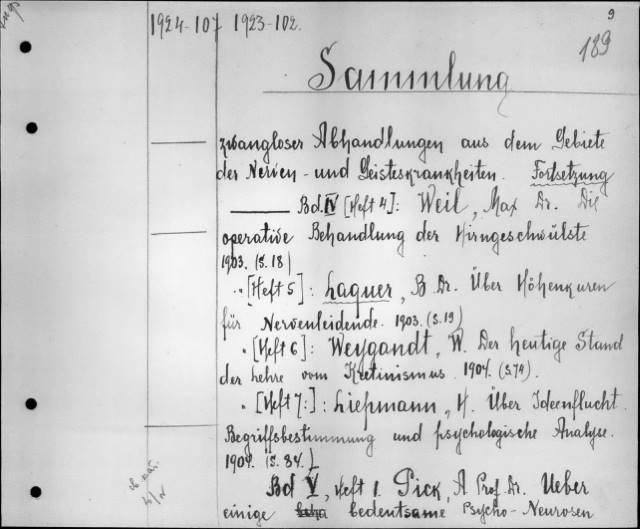 1924-107 1923-102.
9
189
Sammlung
zwangloser Abhandlungen aus dem Gebiete
der Nerven- und Geisteskrankheiten. Fortsetzung
Bd. IV [Heft 4]: Weil, Max Dr. Die
operative Behandlung der Hirngeschwülste
1903. (S. 18)
" [Heft 5]: Laquer, B. Dr. Über Höhenkuren
für Nervenleidende. 1903. (S. 19)
" [Heft 6]: Weygandt, W. Der heutige Stand
der Lehre vom Kretinismus. 1904. (S. 74).
" [Heft 7:]: Liepmann, H. Über Ideenflucht.
Begriffsbestimmung und psychologische Analyse.
1904. (S. 84.)
Bd V, Heft 1. Pick, A Prof. Dr. Ueber
einige bedeutsame Psycho-Neurosen